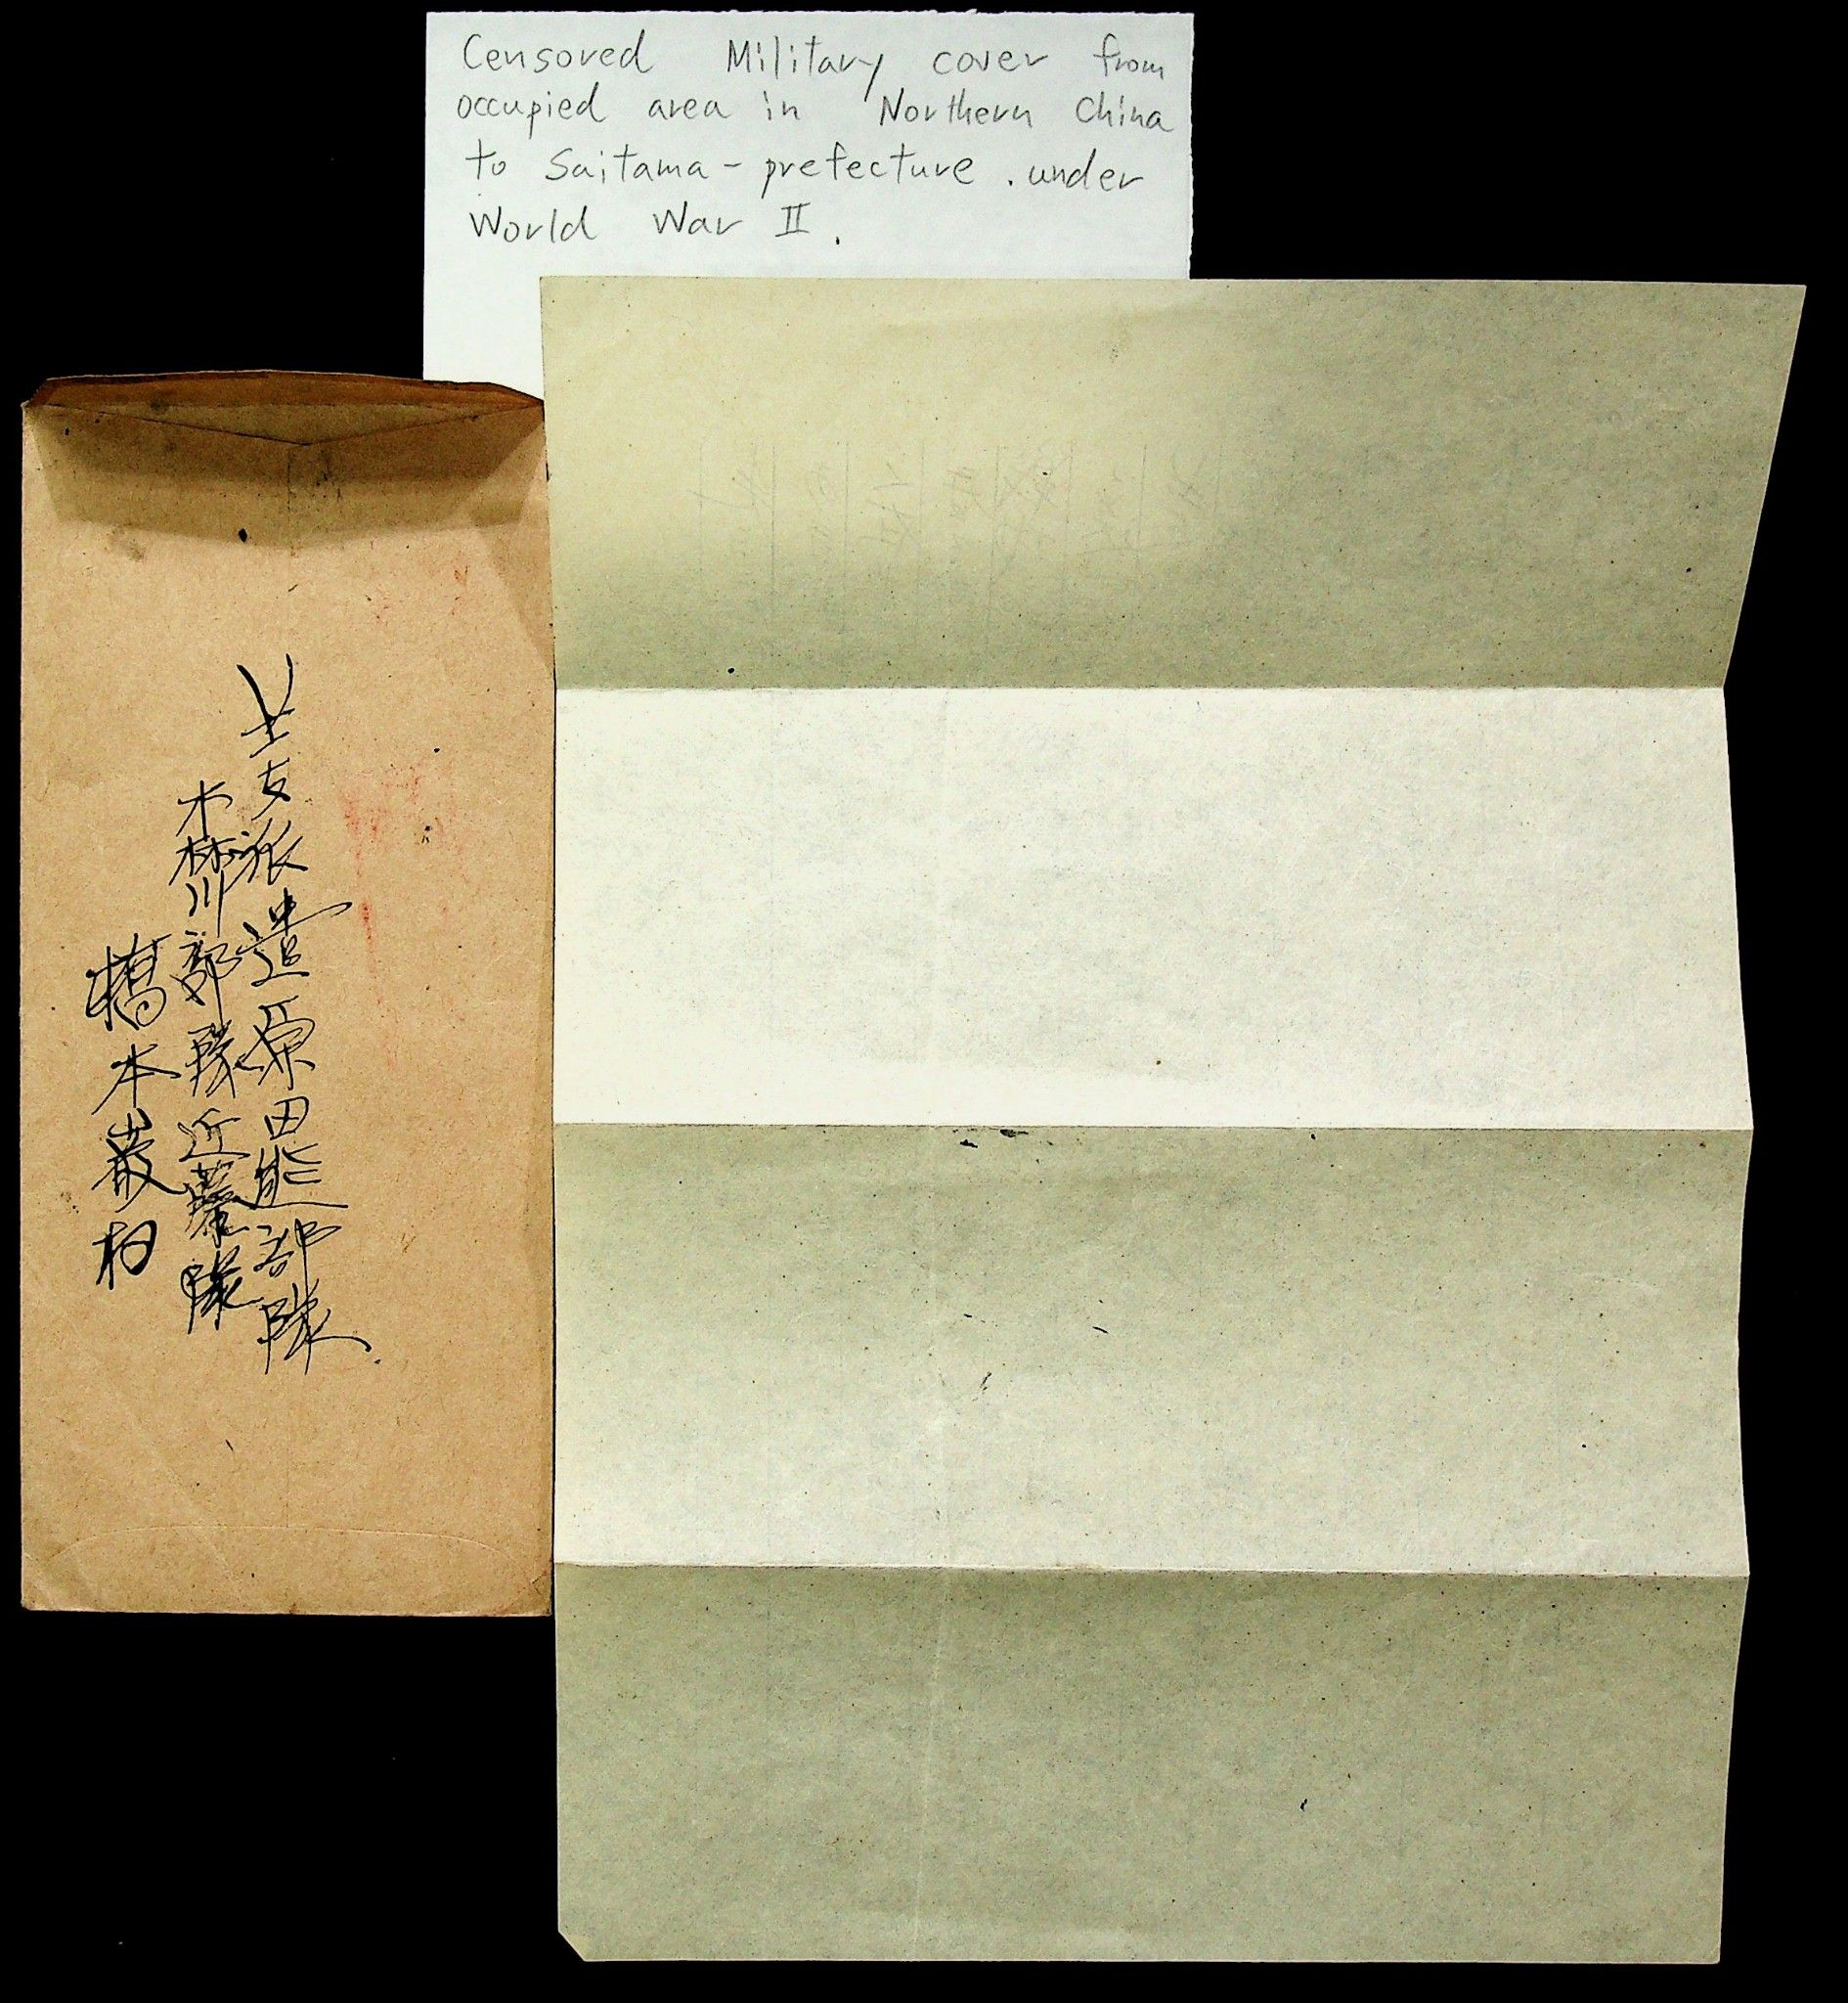 Censored Military cover from
occupied area in Northern China
to Saitama-prefecture . under
World War II .
北支派遣原田熊部隊
森川部隊近藤隊
橋本